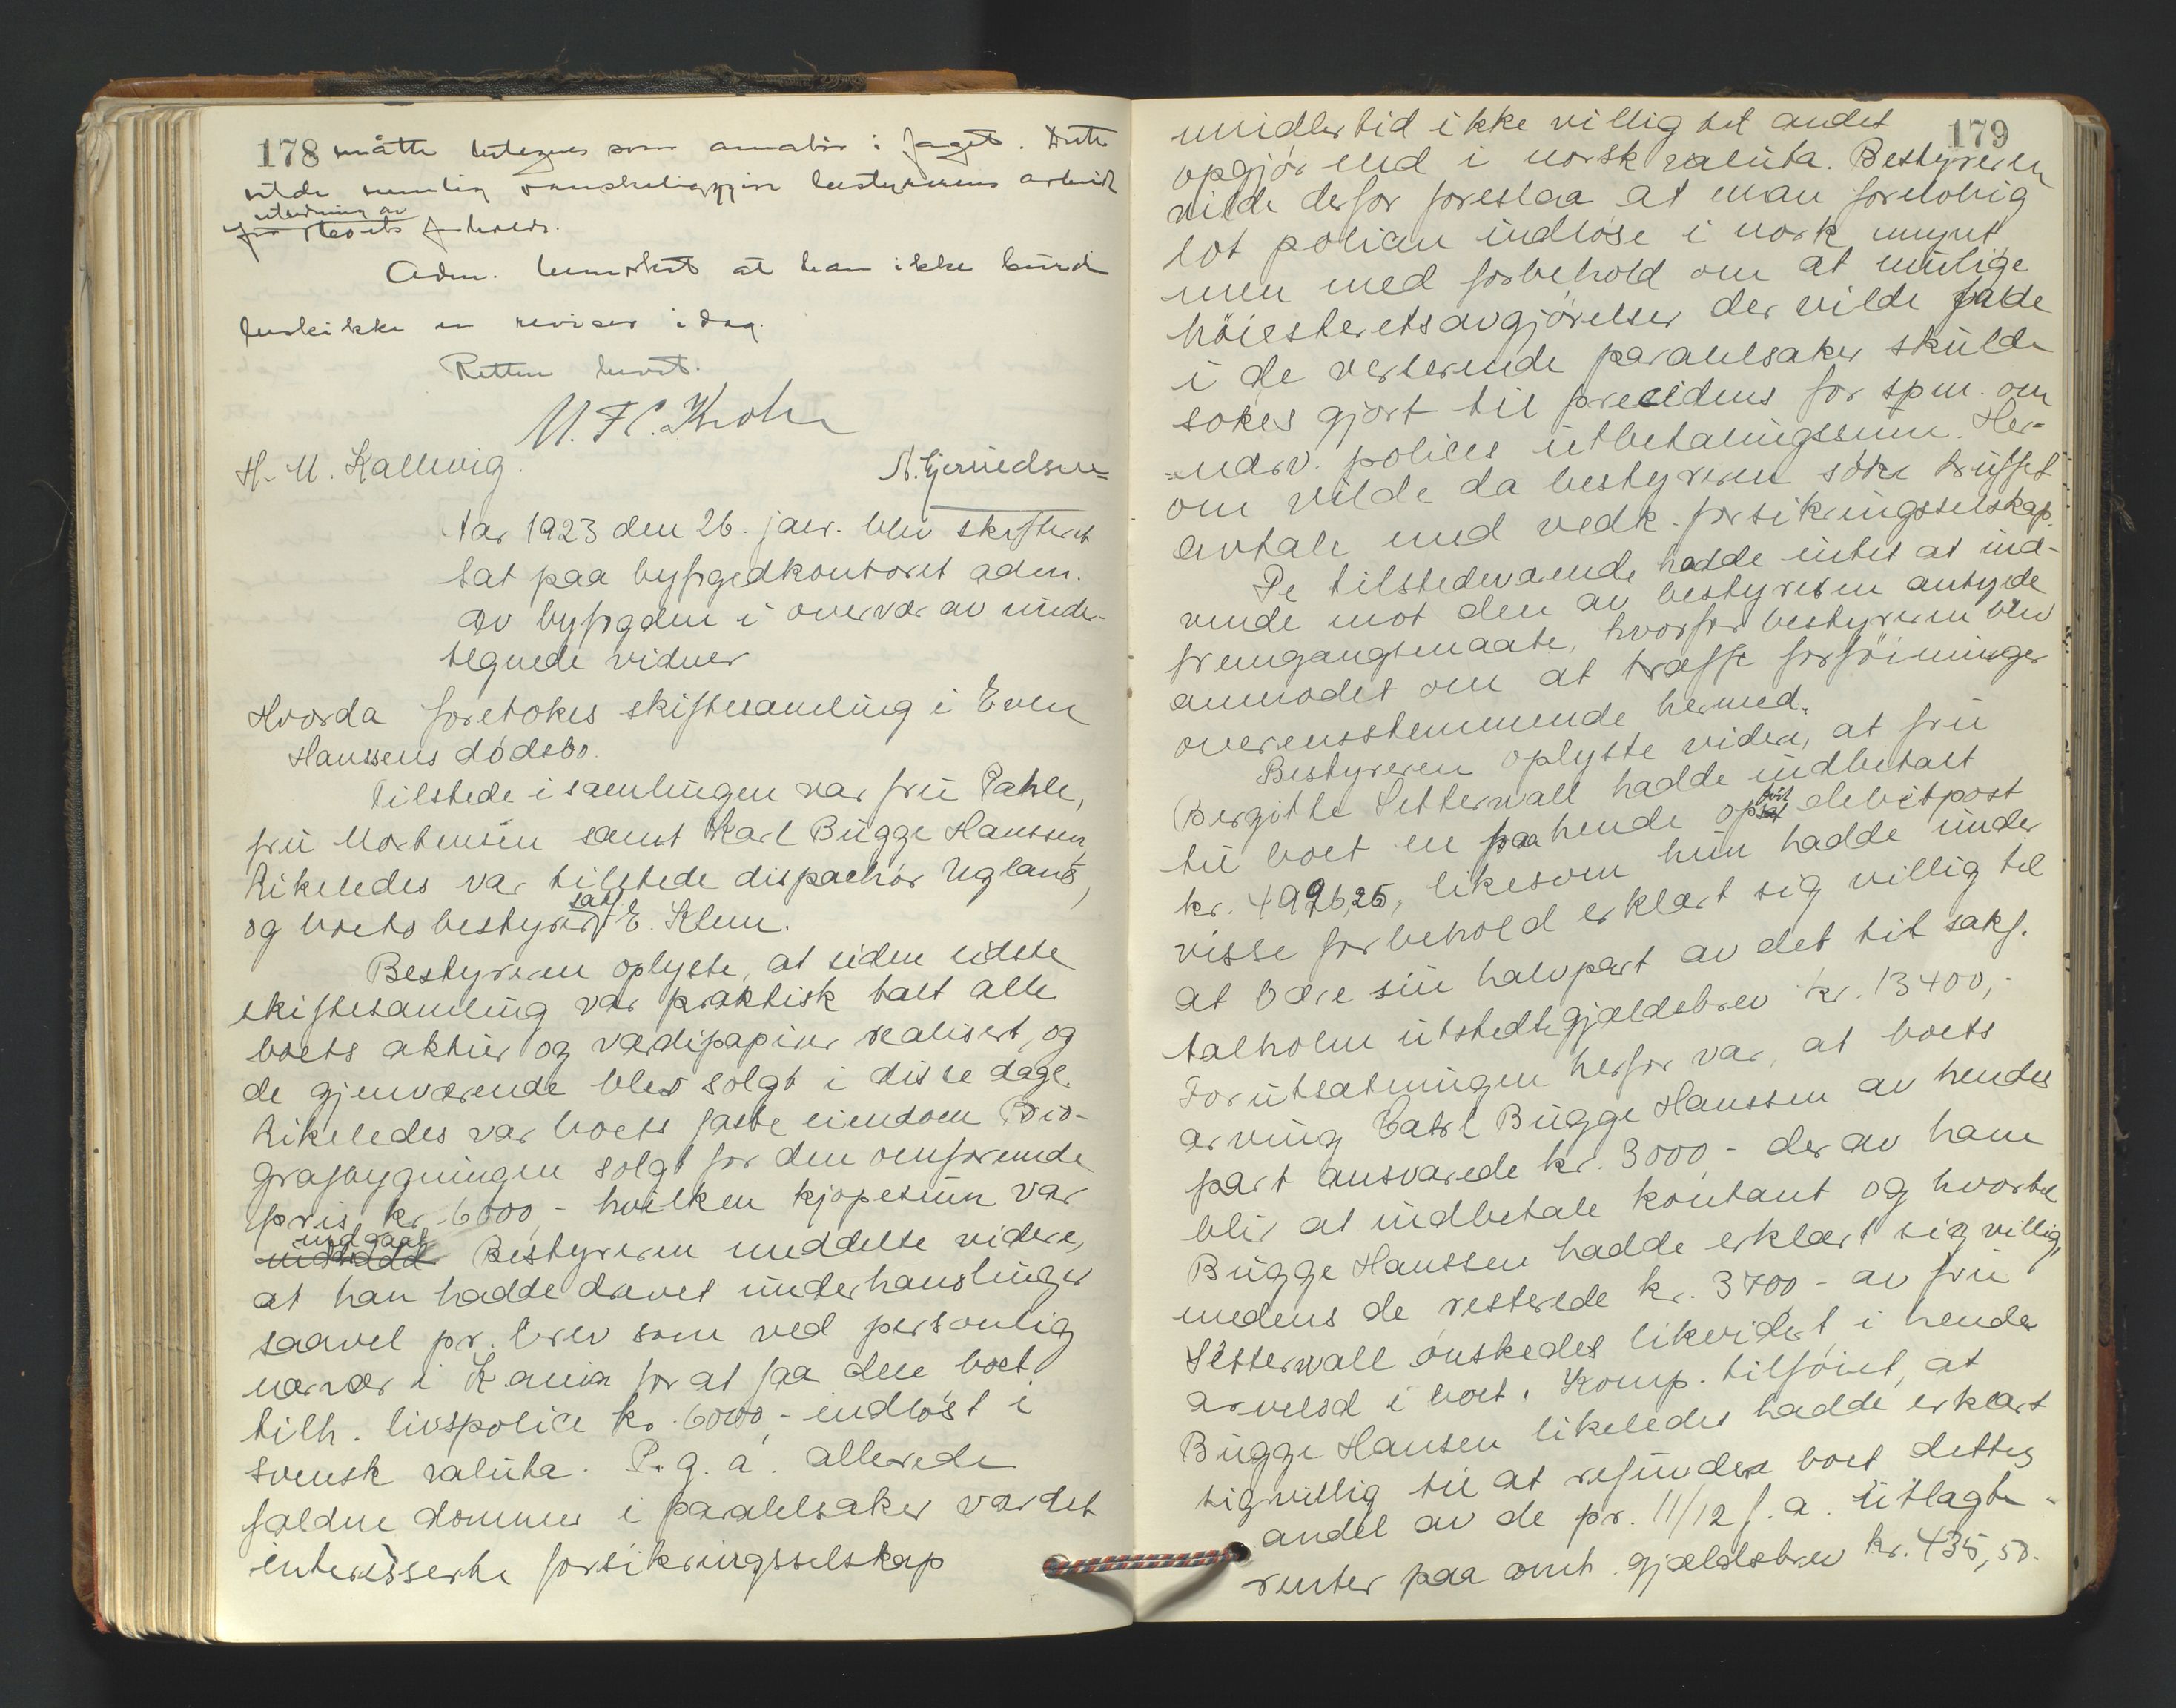 178 måtte betegnes som amatør i faget. Dette
vilde nemlig vanskeliggjøre bestyrerens arbeide
utredning av
for boets forhold.
Adm. bemerket at han ikke kunde
beskikke en revisor idag.
Retten hevet.
H. M. Kallevig.
Aar 1923 den 26. jan. blev skifteret
sat paa byfogedkontoret adm.
av byfogden i overvær av under-
tegnede vidner
Hvorda foretokes skiftesamling i Even
Hanssens dödsbo.
Tilstede i samlingen var fru Pahle,
fru Mortensen samt Karl Bugge Hanssen,
Likeledes var tilstede dispachör Ugland,
og boets bestyrer sakf. E. Klem.
Bestyreren oplyste, at siden sidste
skiftesamling var praktisk talt alle
boets aktier og værdipapirer realisert, og
de gjenværende blev solgt i disse dage.
Likeledes var boets faste eiendom Bio-
grafbygningen solgt for den omforenede
pris kr. 6000,- hvilken kjøpesum var
indgaat
Bestyreren meddelte videre,
at han hadde drevet underhanslinger
saavel pr. brev som ved personlig
nærvær i K.ania for at faa den boet
tilh. livspolice kr. 6000,- indlöst i
svensk valuta. P.g.a. allerede
faldne dommer i paralelsaker var det
interesserte forsikringsselskap
179
imidlertid ikke villig til andet
opgjör end i norsk valuta. Bestyreren
vilde derfor foreslaa at man forelobig
lot policen indlöse i nork mynt
men med forbehold om at mulige
höiesteretsavgjörelser der vilde falde
i de verserende paralelsaker skulde
sökes gjort til precidens for spm. om
nærv. polices utbetalingssum. Her-
om vilde da bestyreren söke truffet
avtale med vedk. forsikringsselskap.
De tilstedeværende hadde intet at ind-
vende mot den av bestyreren antydede
fremgangsmaate, hvorfor bestyreren blev
anmodet om at træffe forföininger
overensstemmende hermed.
Bestyreren oplyste videre, at fru
Bergitte Setterwall hadde indbetalt
til boet en paa hende opfört debetpost
kr. 4996,25, likesom hun hadde under
visse forbehold erklært sig villig til
at bære sin halvpart av det til sakf.
talholm utstedte gjældsbrev kr. 13400,-
Forutsætningen herfor var, at boets
arving Carl Bugge Hanssen av hendes
part ansvarede kr. 3000,- der av ham
blir at indbetale kontant og hvortil
Bugge Hanssen hadde erklært sig villig,
medens de resterede kr. 3700,- av fru
Setterwall önskedes likvidert i hendes
arvelod i boet. Komp. tilföiet, at
Bugge Hansen likeledes hadde erklært
sig villig til at refundere boet dettes
andel av de pr. 11/12 f.a. utlagte
renter paa omh. gjældsbrev kr. 435,50.